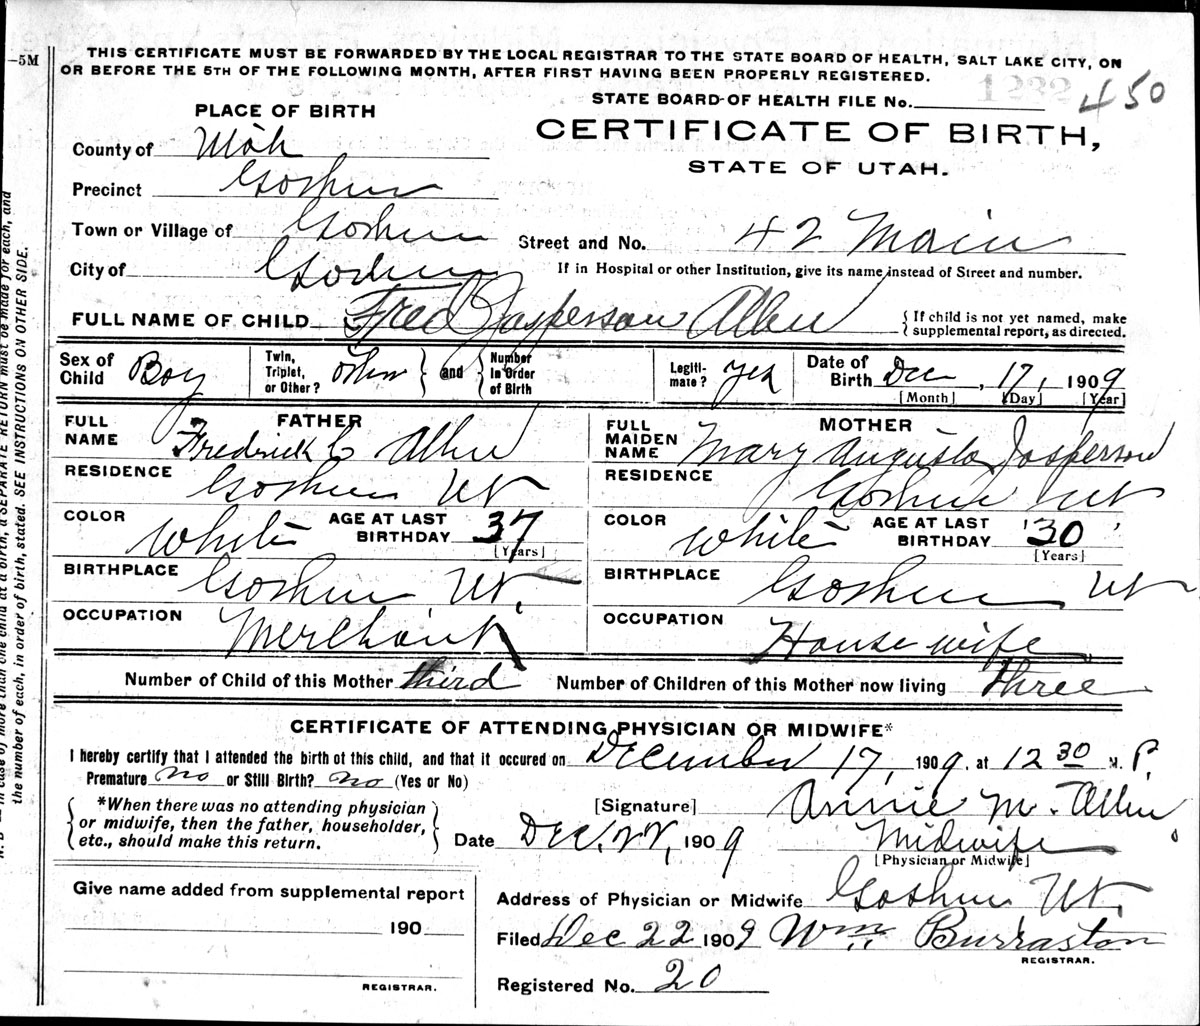 —5M
THIS CERTIFICATE MUST BE FORWARDED BY THE LOCAL REGISTRAR TO THE STATE BOARD OF HEALTH, SALT LAKE CITY, ON
OR BEFORE THE 5TH OF THE FOLLOWING MONTH, AFTER FIRST HAVING BEEN PROPERLY REGISTERED.
STATE BOARD OF HEALTH FILE No. 1232 450
PLACE OF BIRTH
CERTIFICATE OF BIRTH,
STATE OF UTAH.
County of Utah
Precinct Goshen
Town or Village of Goshen
Street and No. 42 Main
City of Goshen
If in Hospital or other Institution, give its name instead of Street and number.
FULL NAME OF CHILD Fred Jasperson Allen
{ If child is not yet named, make
{ supplemental report, as directed.
Sex of Child Boy
Twin, Triplet, or Other? other { and } Number in Order of Birth
Legiti- mate? yes
Date of Birth Dec, 17, 1909
[Month] [Day] [Year]
FATHER
FULL NAME Fredrick C Allen
RESIDENCE Goshen Ut
COLOR White AGE AT LAST BIRTHDAY 37
[Years]
BIRTHPLACE Goshen Ut.
OCCUPATION Merchant
MOTHER
FULL MAIDEN NAME Mary Augusta Jasperson
RESIDENCE Goshen Ut
COLOR White AGE AT LAST BIRTHDAY 30
[Years]
BIRTHPLACE Goshen Ut
OCCUPATION House wife
Number of Child of this Mother third Number of Children of this Mother now living Three
CERTIFICATE OF ATTENDING PHYSICIAN OR MIDWIFE*
I hereby certify that I attended the birth of this child, and that it occured on December 17, 1909. at 12 30 M. P.
Premature no or Still Birth? no (Yes or No)
{ *When there was no attending physician
or midwife, then the father, householder,
etc., should make this return. }
[Signature] Annie M. Allen
Date Dec. 22, 1909 Midwife
[Physician or Midwife]
Give name added from supplemental report
190
REGISTRAR.
Address of Physician or Midwife Goshen Ut.
Filed Dec 22 1909 Wm. Burraston
REGISTRAR.
Registered No. 20
in case of more than one child at a birth, a SEPARATE RETURN must be made for each, and
the number of each, in order of birth, stated. SEE INSTRUCTIONS ON OTHER SIDE.